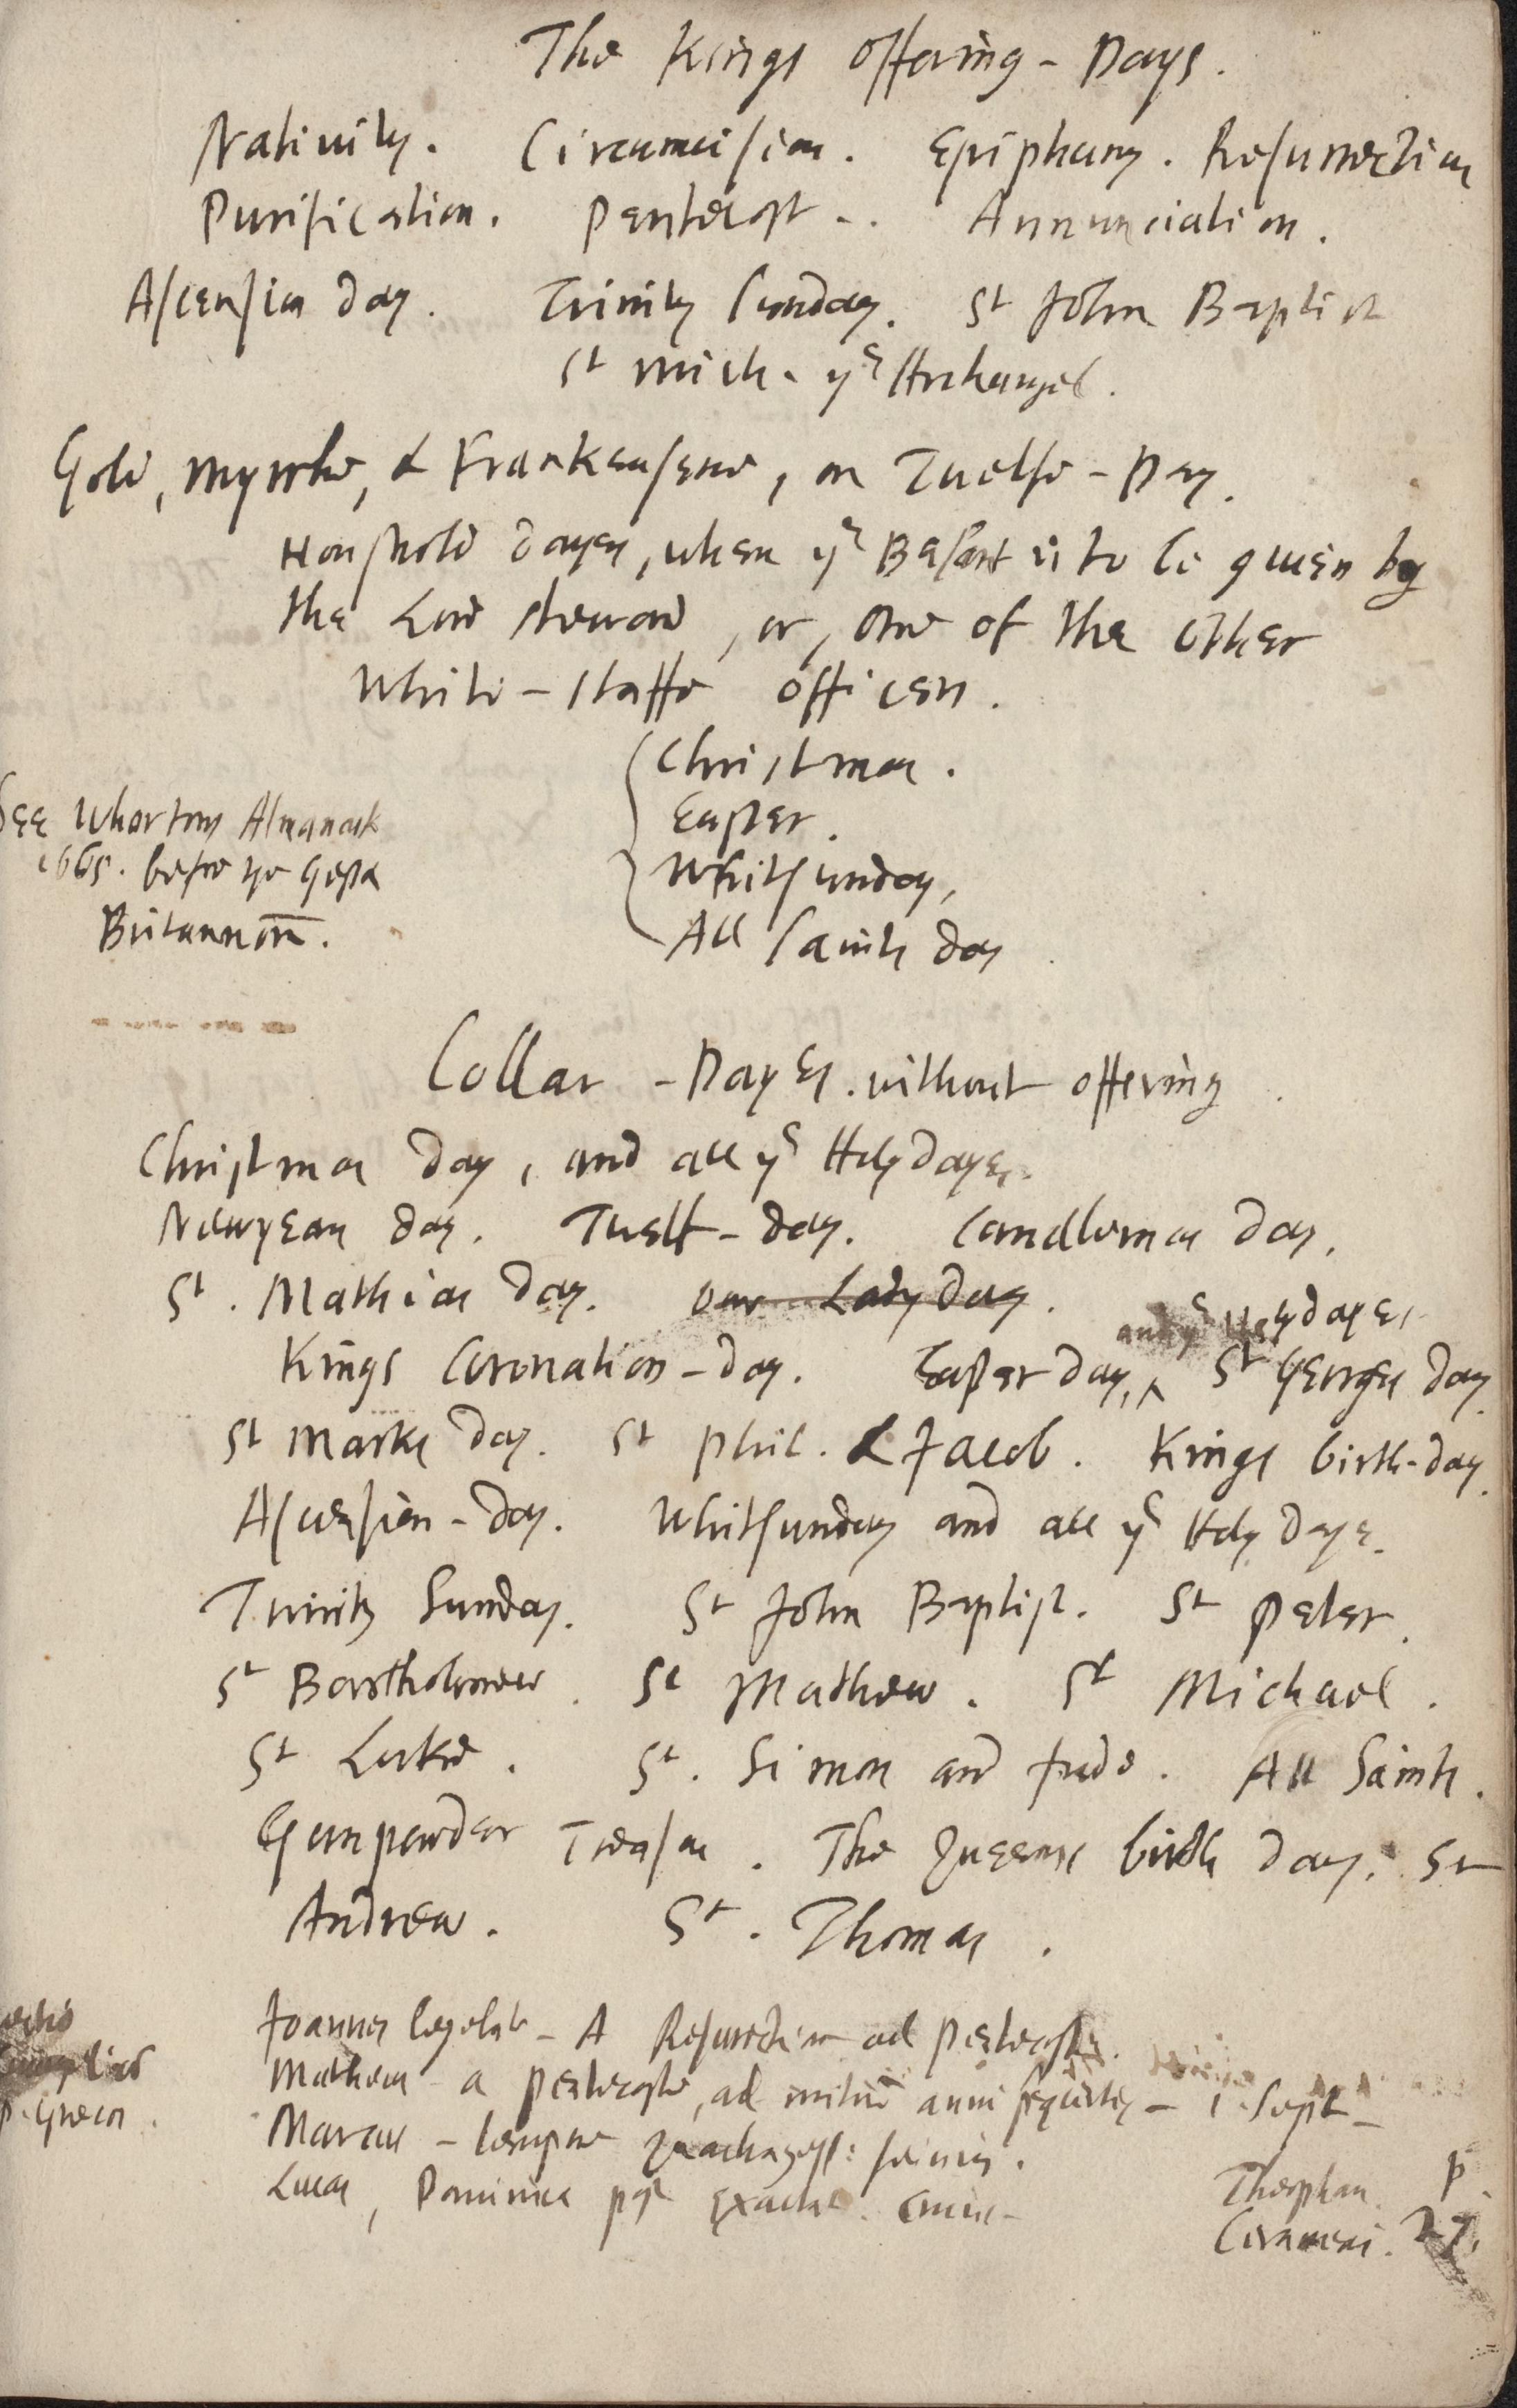 The Kings offering - Days.
Nativity. Circumcision. Epiphany. Resurrection
Purification. Pentecost -. Annunciation.
Ascension day. Trinity Sunday. St John Baptist
St Mich. ye Archangel.
Gold, Myrrhe, & Frankensene, on Twelfe - Day.
Houshold dayes, when ye Besant is to be given by
the Lord steward, or, one of the other
White - staffe officers.
Christmas.
Easter.
Whitsunday,
All Saints day
See Whartons Almanack
1665. before ye Gesta
Britannorū.
Collar - Dayes. without offering.
Christmas day, and all ye Holydayes.
Newyears day. Twelf - day. Candlemas day.
St. Mathias day. our Lady day.
and ye Holydayes
Kings Coronation - day. Easter day, ^ St Georges day.
St Marks day. St Phil. & Jacob. Kings birth-day.
Ascension - day. Whitsunday and all ye Holy dayes.
Trinity Sunday. St John Baptist. St Peter.
St Bartholomew. St Mathew. St Michael.
St Luke. St. Simon and Jude. All Saints.
Gunpowder Treason. The Queens birth day. St
Andrew. St. Thomas.
Joannes - A Resurrectione ad Pentecosten.
Matheus - a Pentecoste, ad initiū anni sequentis - 1 Sept -
Marcus - tempore
Lucas, Dominica post Exaltat. Crucis -
Theophan p.
Cerameus. 27.